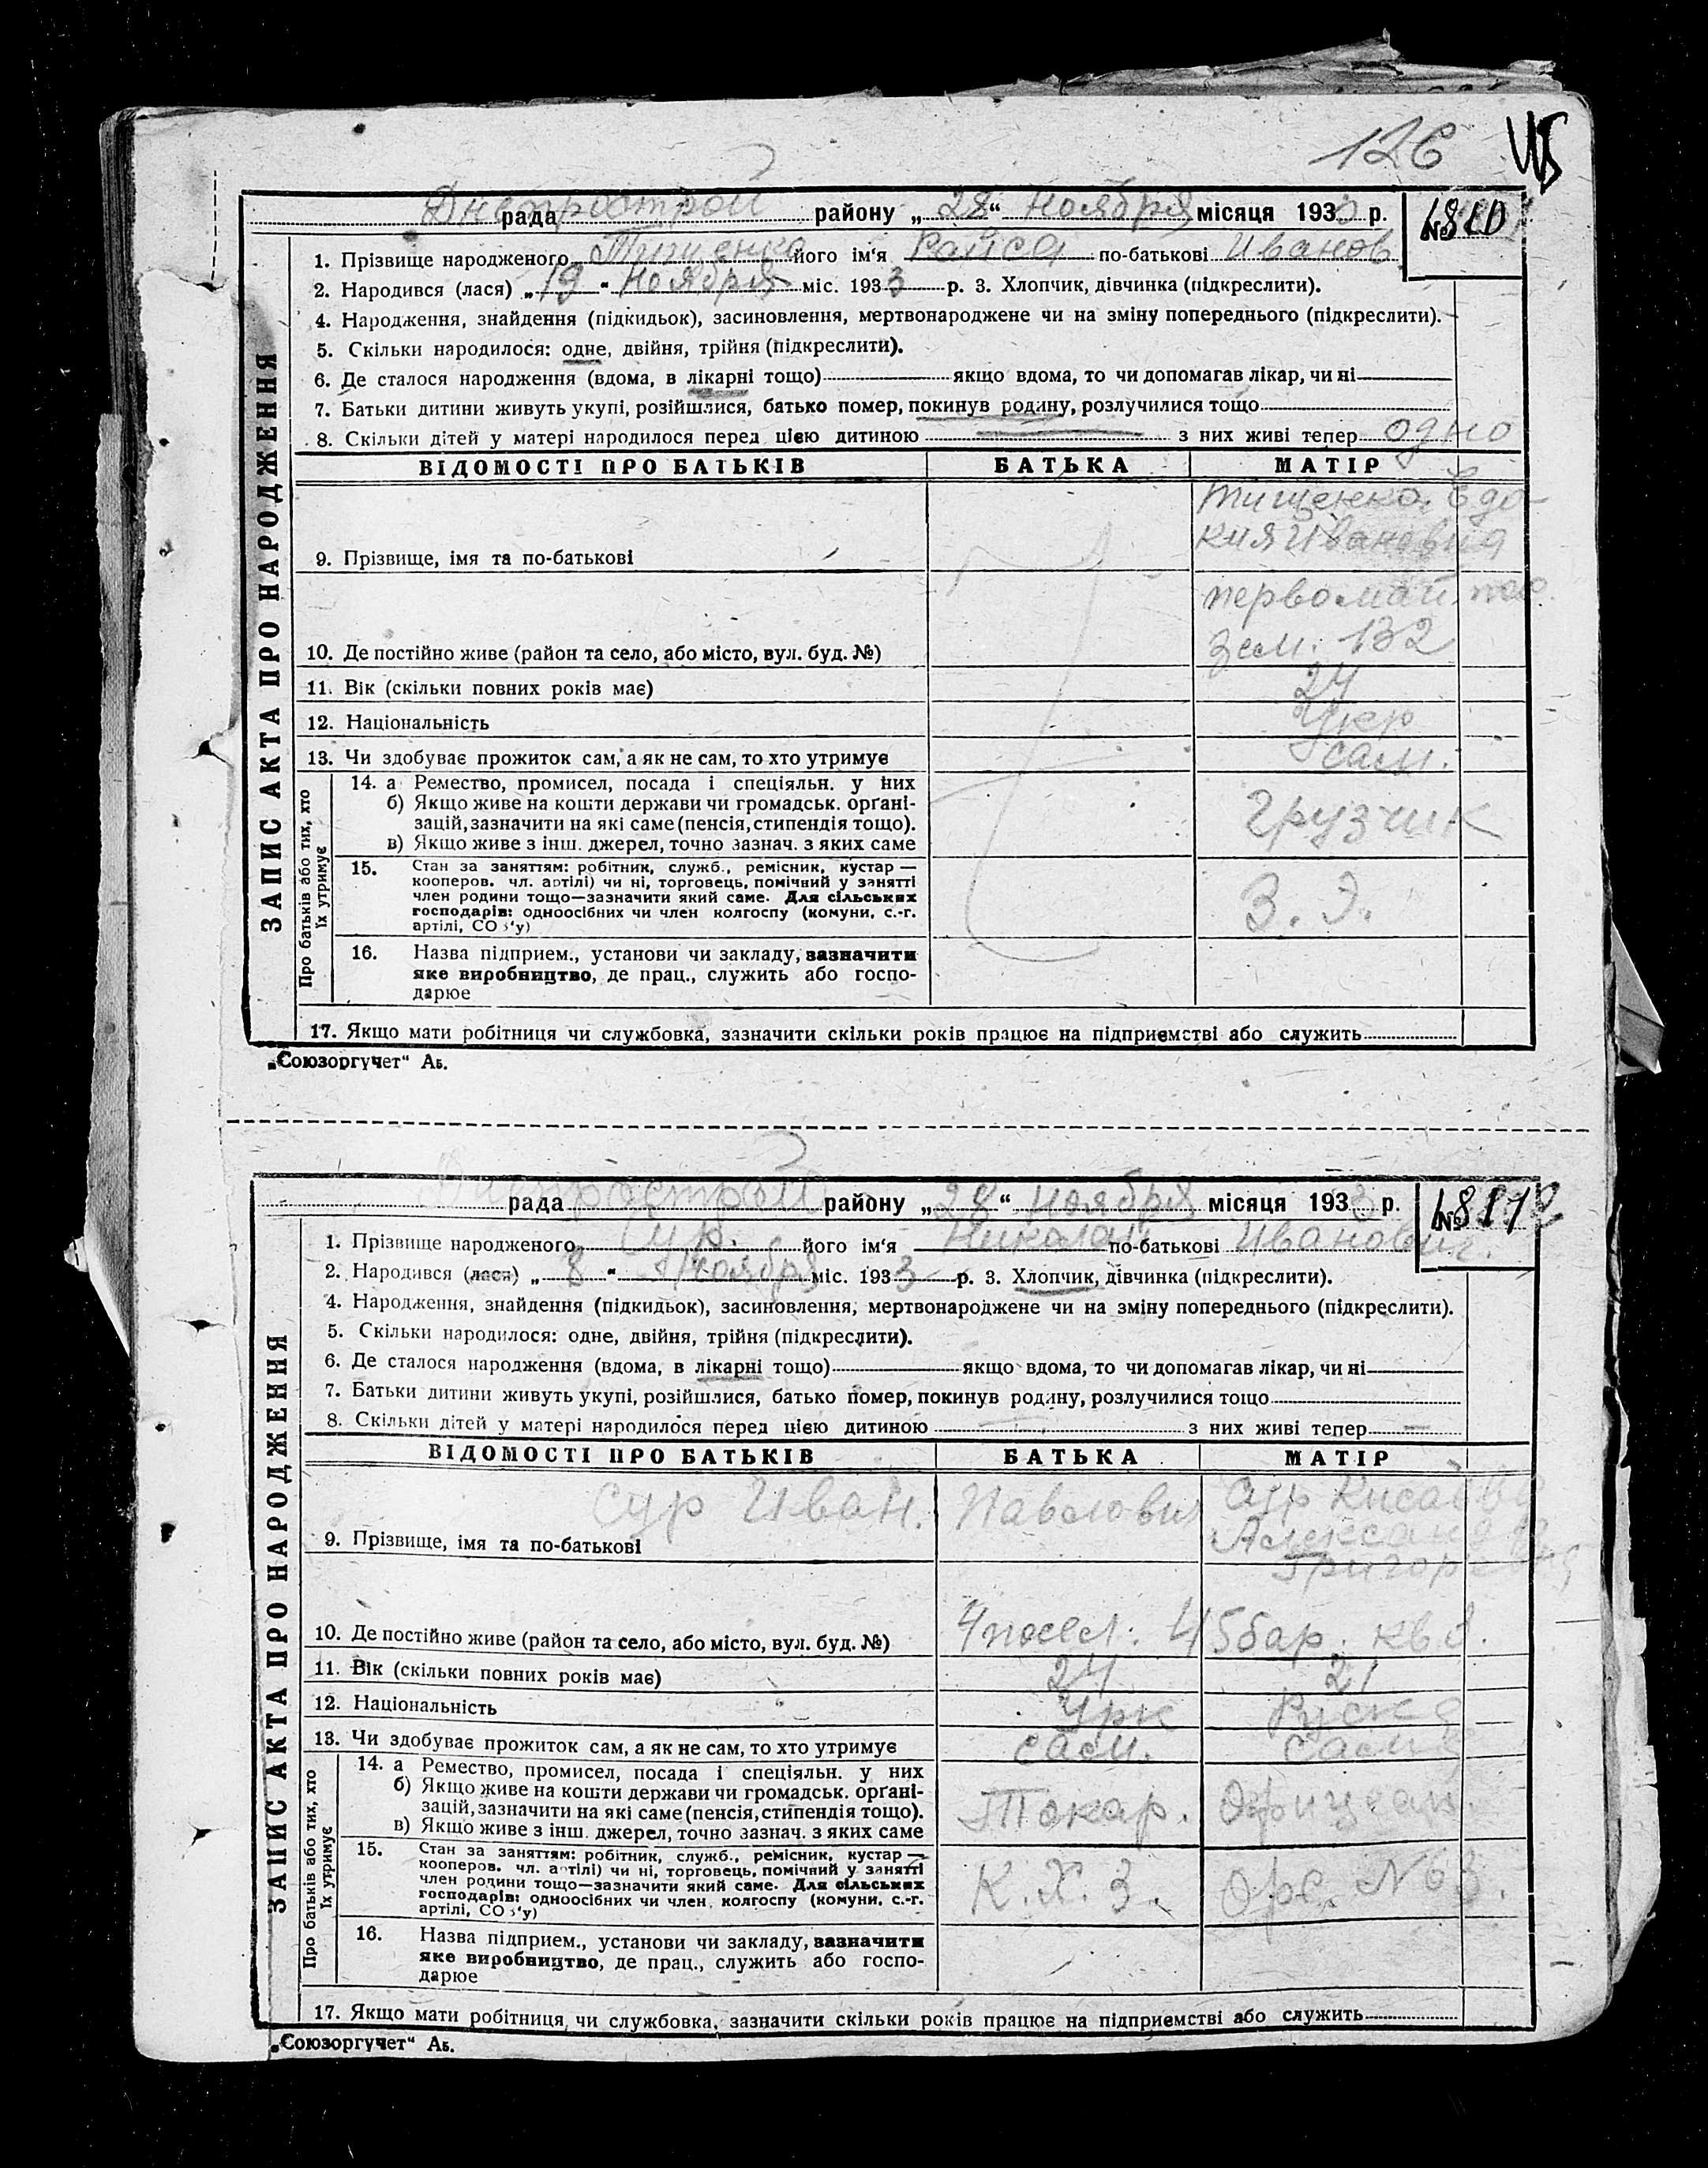 126
Днепрострой
рада района „28“ Ноября місяця 1933 р. № 1810
1. Прізвище народженого Тищенко його ім'я Раиса по-батькові Иванов
2. Народився (лася) „19“ Ноября міс. 1933 р. 3. Хлопчик, дівчинка (підкреслити).
4. Народження, знайдення (підкидьок), засиновлення, мертвонароджене чи на зміну попереднього (підкреслити).
5. Скільки народилося: одне, двійня, трійня (підкреслити).
6. Де сталося народження (вдома, в лікарні тощо) якщо вдома, то чи допомагав лікар, чи ні
7. Батьки дитини живуть укупі, розійшлися, батько помер, покинув родину, розлучилися тощо
8. Скільки дітей у матері народилося перед цією дитиною з них живі тепер одно
ЗАПИС АКТА ПРО НАРОДЖЕННЯ
ВІДОМОСТІ ПРО БАТЬКІВ БАТЬКА МАТІР
Тищенко Евдо-
кия Ивановна
9. Прізвище, імя та по-батькові
первомай. пос.
зем. 132
10. Де постійно живе (район та село, або місто, вул. буд. №)
11. Вік (скільки повних років має) 24
12. Національність Укр
13. Чи здобуває прожиток сам, а як не сам, то хто утримує сам.
Про батьків або тих, хто їх утримує
14. а Ремество, промисел, посада і спеціяльн. у них
б) Якщо живе на кошти держави чи громадськ. орґані-
зацій, зазначити на які саме (пенсія, стипендія тощо). Грузчик
в) Якщо живе з інш. джерел, точно зазнач. з яких саме
15. Стан за заняттям: робітник, служб., ремісник, кустар —
кооперов. чл. артілі) чи ні, торговець, помічний у занятті
член родини тощо—зазначити який саме. Для сільських
господарів: одноосібних чи член колгоспу (комуни, с.-г.
артілі, СОЗ'у) З. Э.
16. Назва підприєм., установи чи закладу, зазначити
яке виробництво, де прац., служить або госпо-
дарює
17. Якщо мати робітниця чи службовка, зазначити скільки років працює на підприємстві або служить
„Союзоргучет“ Аб.
Днепрострой
рада району „28“ Ноября місяця 1933 р. №
1. Прізвище народженого Сур. його ім'я Николай по-батькові Иванович.
2. Народився (лася) „8“ Ноября міс. 1933 р. 3. Хлопчик, дівчинка (підкреслити).
4. Народження, знайдення (підкидьок), засиновлення, мертвонароджене чи на зміну попереднього (підкреслити).
5. Скільки народилося: одне, двійня, трійня (підкреслити).
6. Де сталося народження (вдома, в лікарні тощо) якщо вдома, то чи допомагав лікар, чи ні
7. Батьки дитини живуть укупі, розійшлися, батько помер, покинув родину, розлучилися тощо
8. Скільки дітей у матері народилося перед цією дитиною — з них живі тепер —
ЗАПИС АКТА ПРО НАРОДЖЕННЯ
ВІДОМОСТІ ПРО БАТЬКІВ БАТЬКА МАТІР
Сур Иван. Павлович Сур
Александра
Григоревна
9. Прізвище, імя та по-батькові
10. Де постійно живе (район та село, або місто, вул. буд. №) 4 посел. 45 бар. кв 8.
11. Вік (скільки повних років має) 24 21
12. Національність Урк Руска
13. Чи здобуває прожиток сам, а як не сам, то хто утримує сам. сама
Про батьків або тих, хто їх утримує
14. а Ремество, промисел, посада і спеціяльн. у них
б) Якщо живе на кошти держави чи громадськ. орґані-
зацій, зазначити на які саме (пенсія, стипендія тощо). Токар. Официан.
в) Якщо живе з інш. джерел, точно зазнач. з яких саме
15. Стан за заняттям: робітник, служб., ремісник, кустар —
кооперов. чл. артілі) чи ні, торговець, помічний у занятті
член родини тощо—зазначити який саме. Для сільських
господарів: одноосібних чи член колгоспу (комуни, с.-г.
артілі, СОЗ'у) К. Х. З. Орс. №
16. Назва підприєм., установи чи закладу, зазначити
яке виробництво, де прац., служить або госпо-
дарює
17. Якщо мати робітниця чи службовка, зазначити скільки років працює на підприємстві або служить
„Союзоргучет“ Аб.